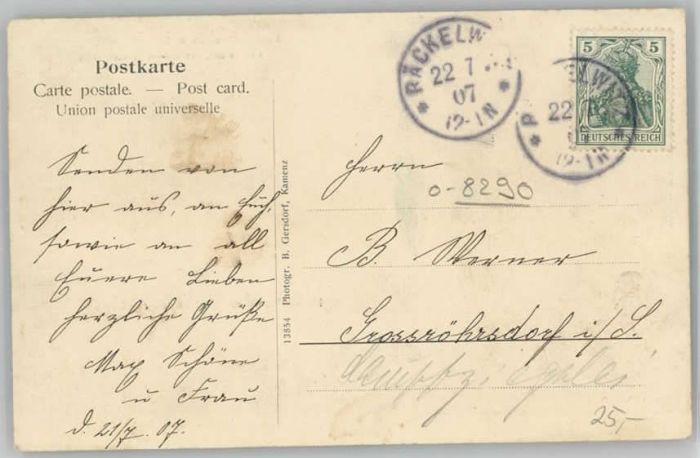 Postkarte
Carte postale. — Post card.
Union postale universelle
Senden von
hier aus, an Euch,
sowie an all
Euere Lieben
herzliche Grüße
Max Schöne
u Frau
d. 21/7. 07.
13854 Photogr. B. Gersdorf, Kamenz
RÄCKELW
22 7
07
12-1N
5 5
DEUTSCHES REICH
22
12-1N
Herrn
o-8290
B. Werner
Grossröhrsdorf i/S.
25,-